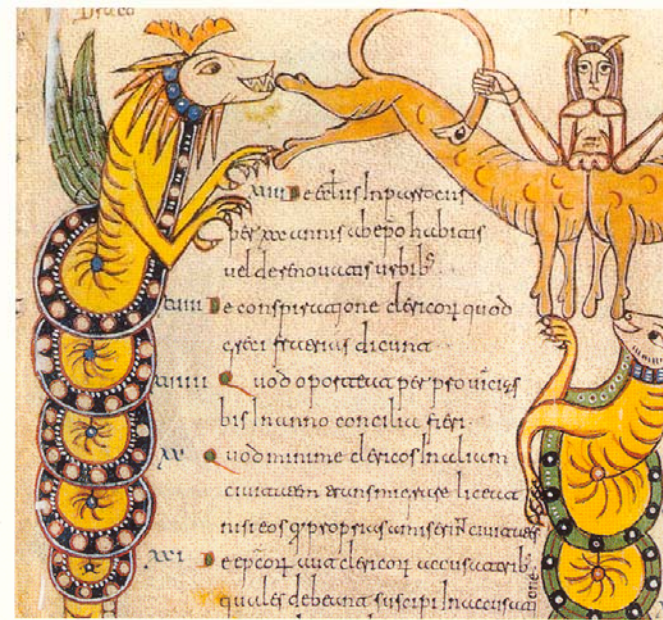 Draco
xuii De eclis In parrociis
per xxx annis ab epo habitis
uel de renouatis urbib
xuiii De conspiratione clericor quod
greci fratrias dicunt
xuiiii Quod oporteat per prouincias
bis In anno concilia fieri
xx Quod minime clericos In aliam
ciuitatem transmigrare liceat
nisi eos q proprias amiserint ciuitates
xxi De epcor aut clericor accusatorib
quales debeant suscipi In accusatione